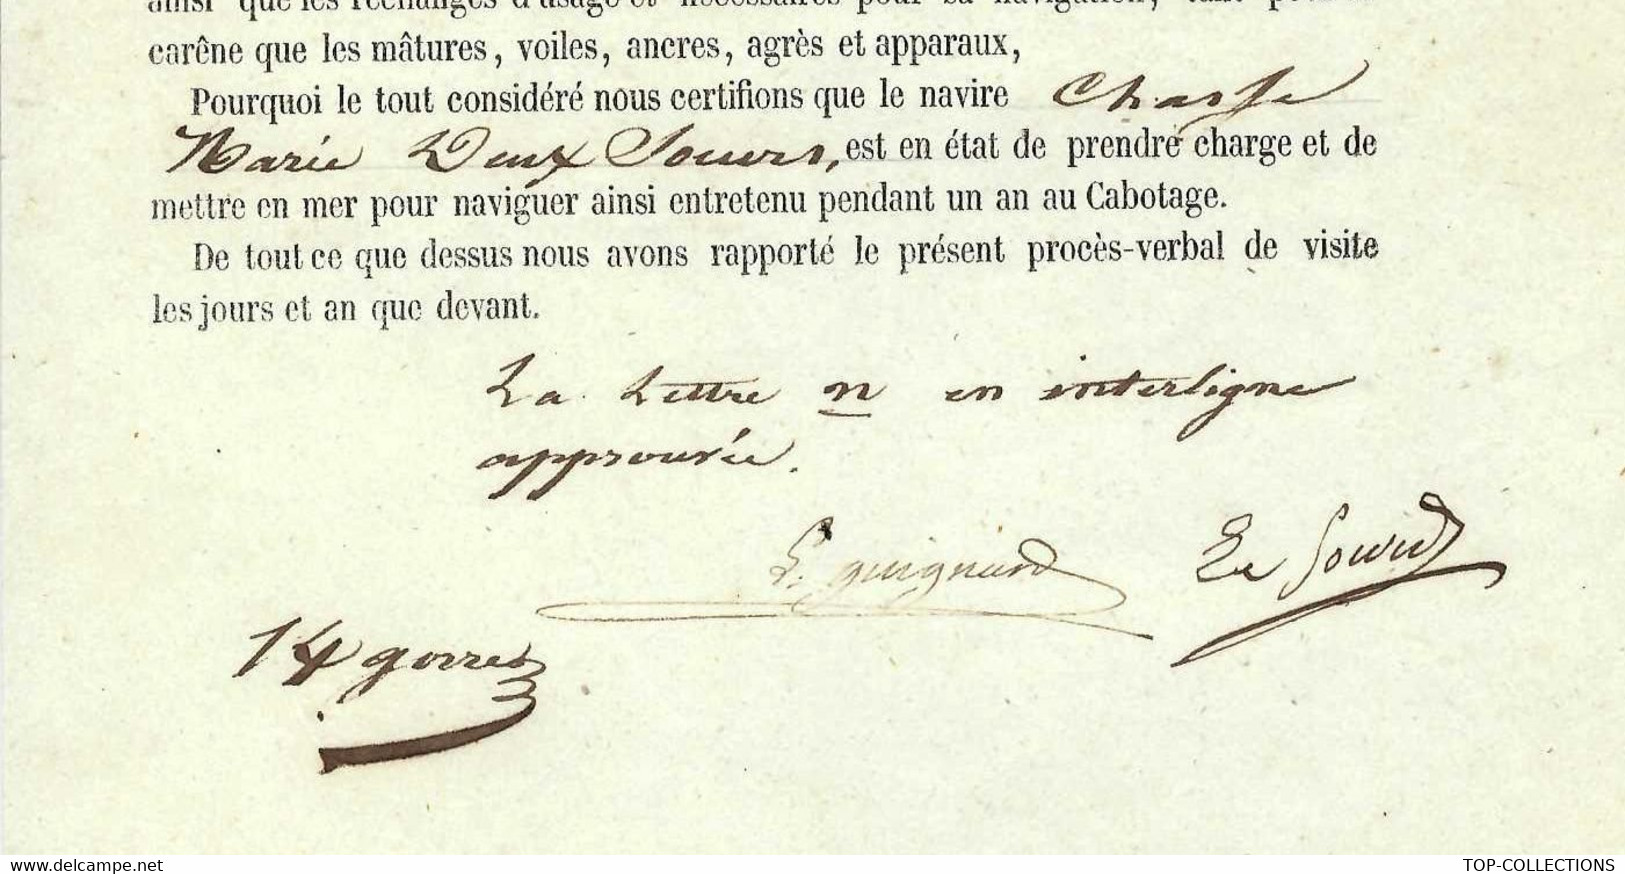 ainsi que les rechanges d'usage et nécessaires pour sa navigation, tant pour la
carêne que les mâtures, voiles, ancres, agrès et apparaux,
Pourquoi le tout considéré nous certifions que le navire Chasse
Marée Deux Soeurs, est en état de prendre charge et de
mettre en mer pour naviguer ainsi entretenu pendant un an au Cabotage.
De tout ce que dessus nous avons rapporté le présent procès-verbal de visite
les jours et an que devant.
La Lettre n en interligne
approuvée.
guignard
www.delcampe.net
TOP-COLLECTIONS